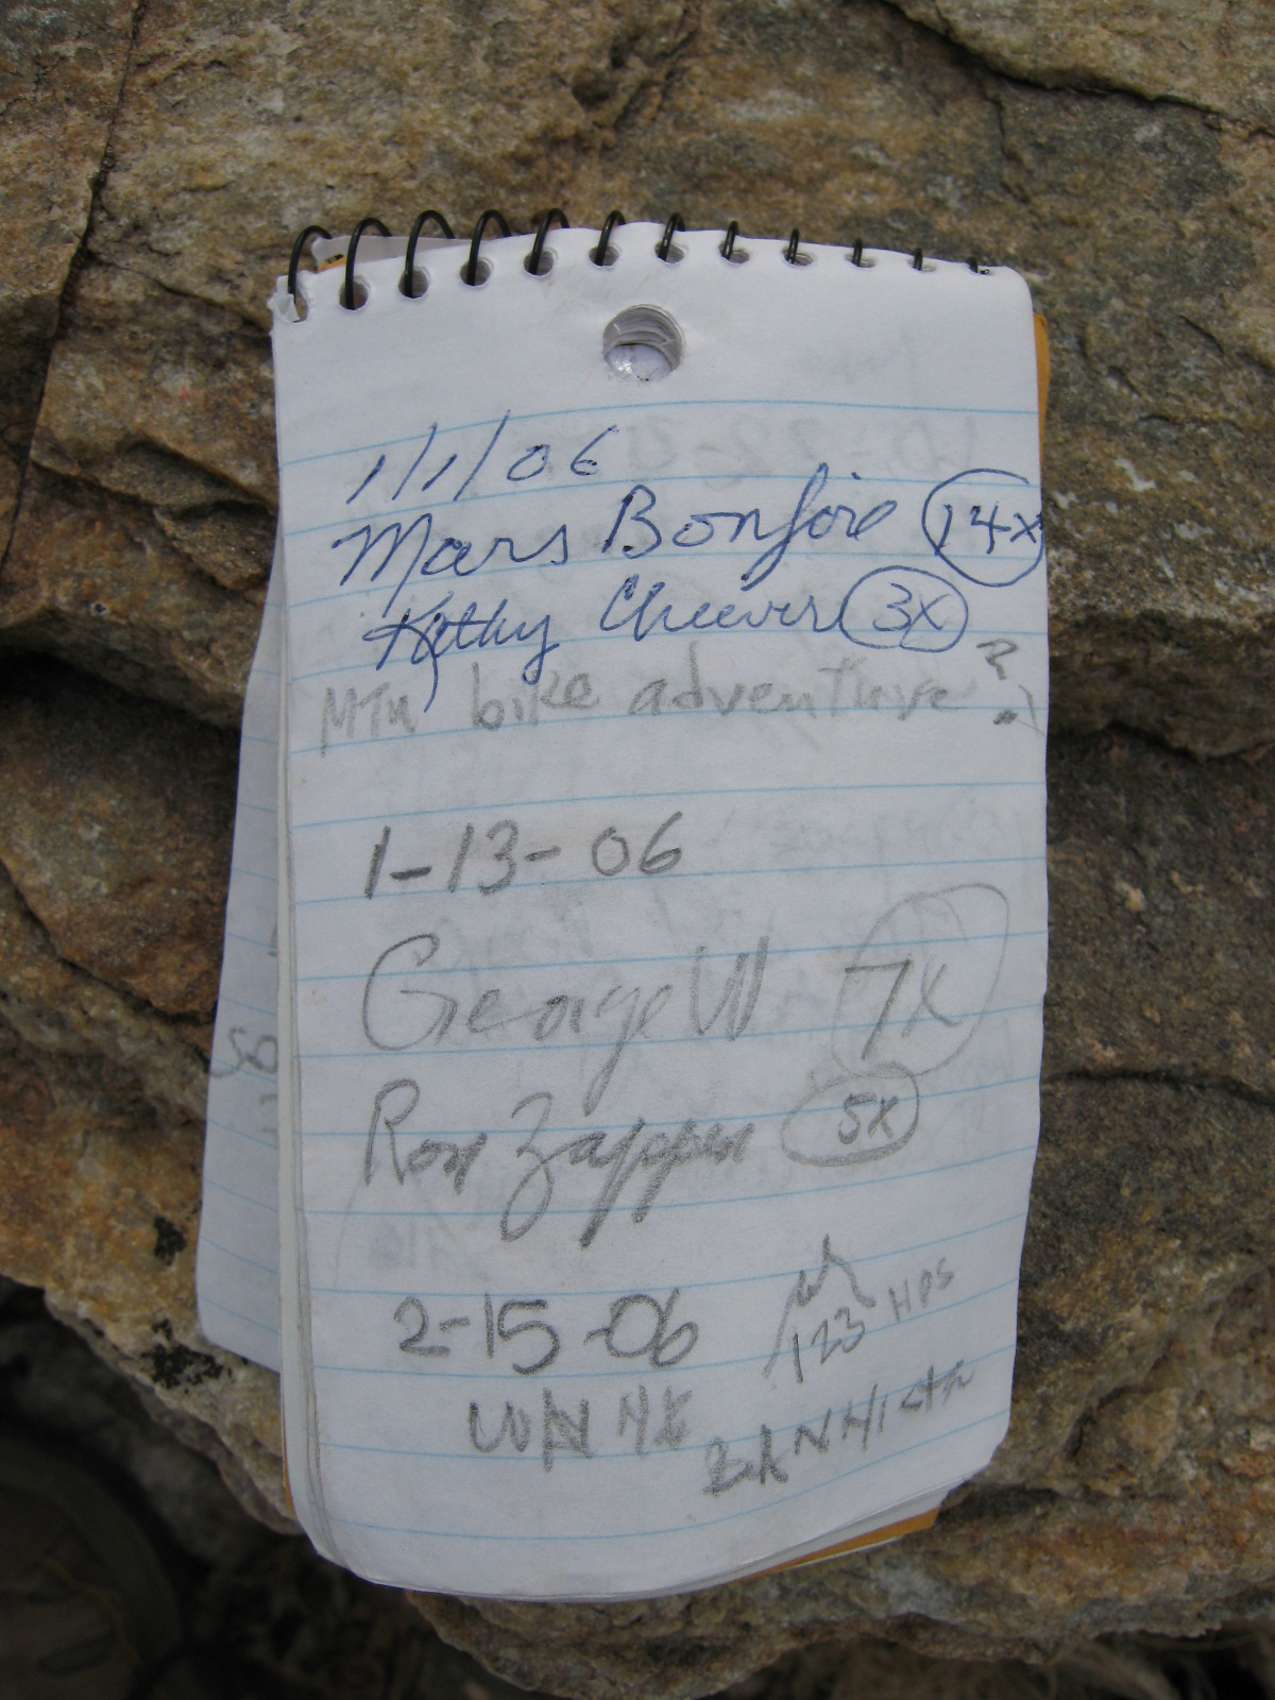 1/1/06
Mars Bonfire 14x
Kathy Cheever 3x
Mtn bike adventure?
1-13-06
George W 7x
Ron Zappen 5x
2-15-06
123 HPS